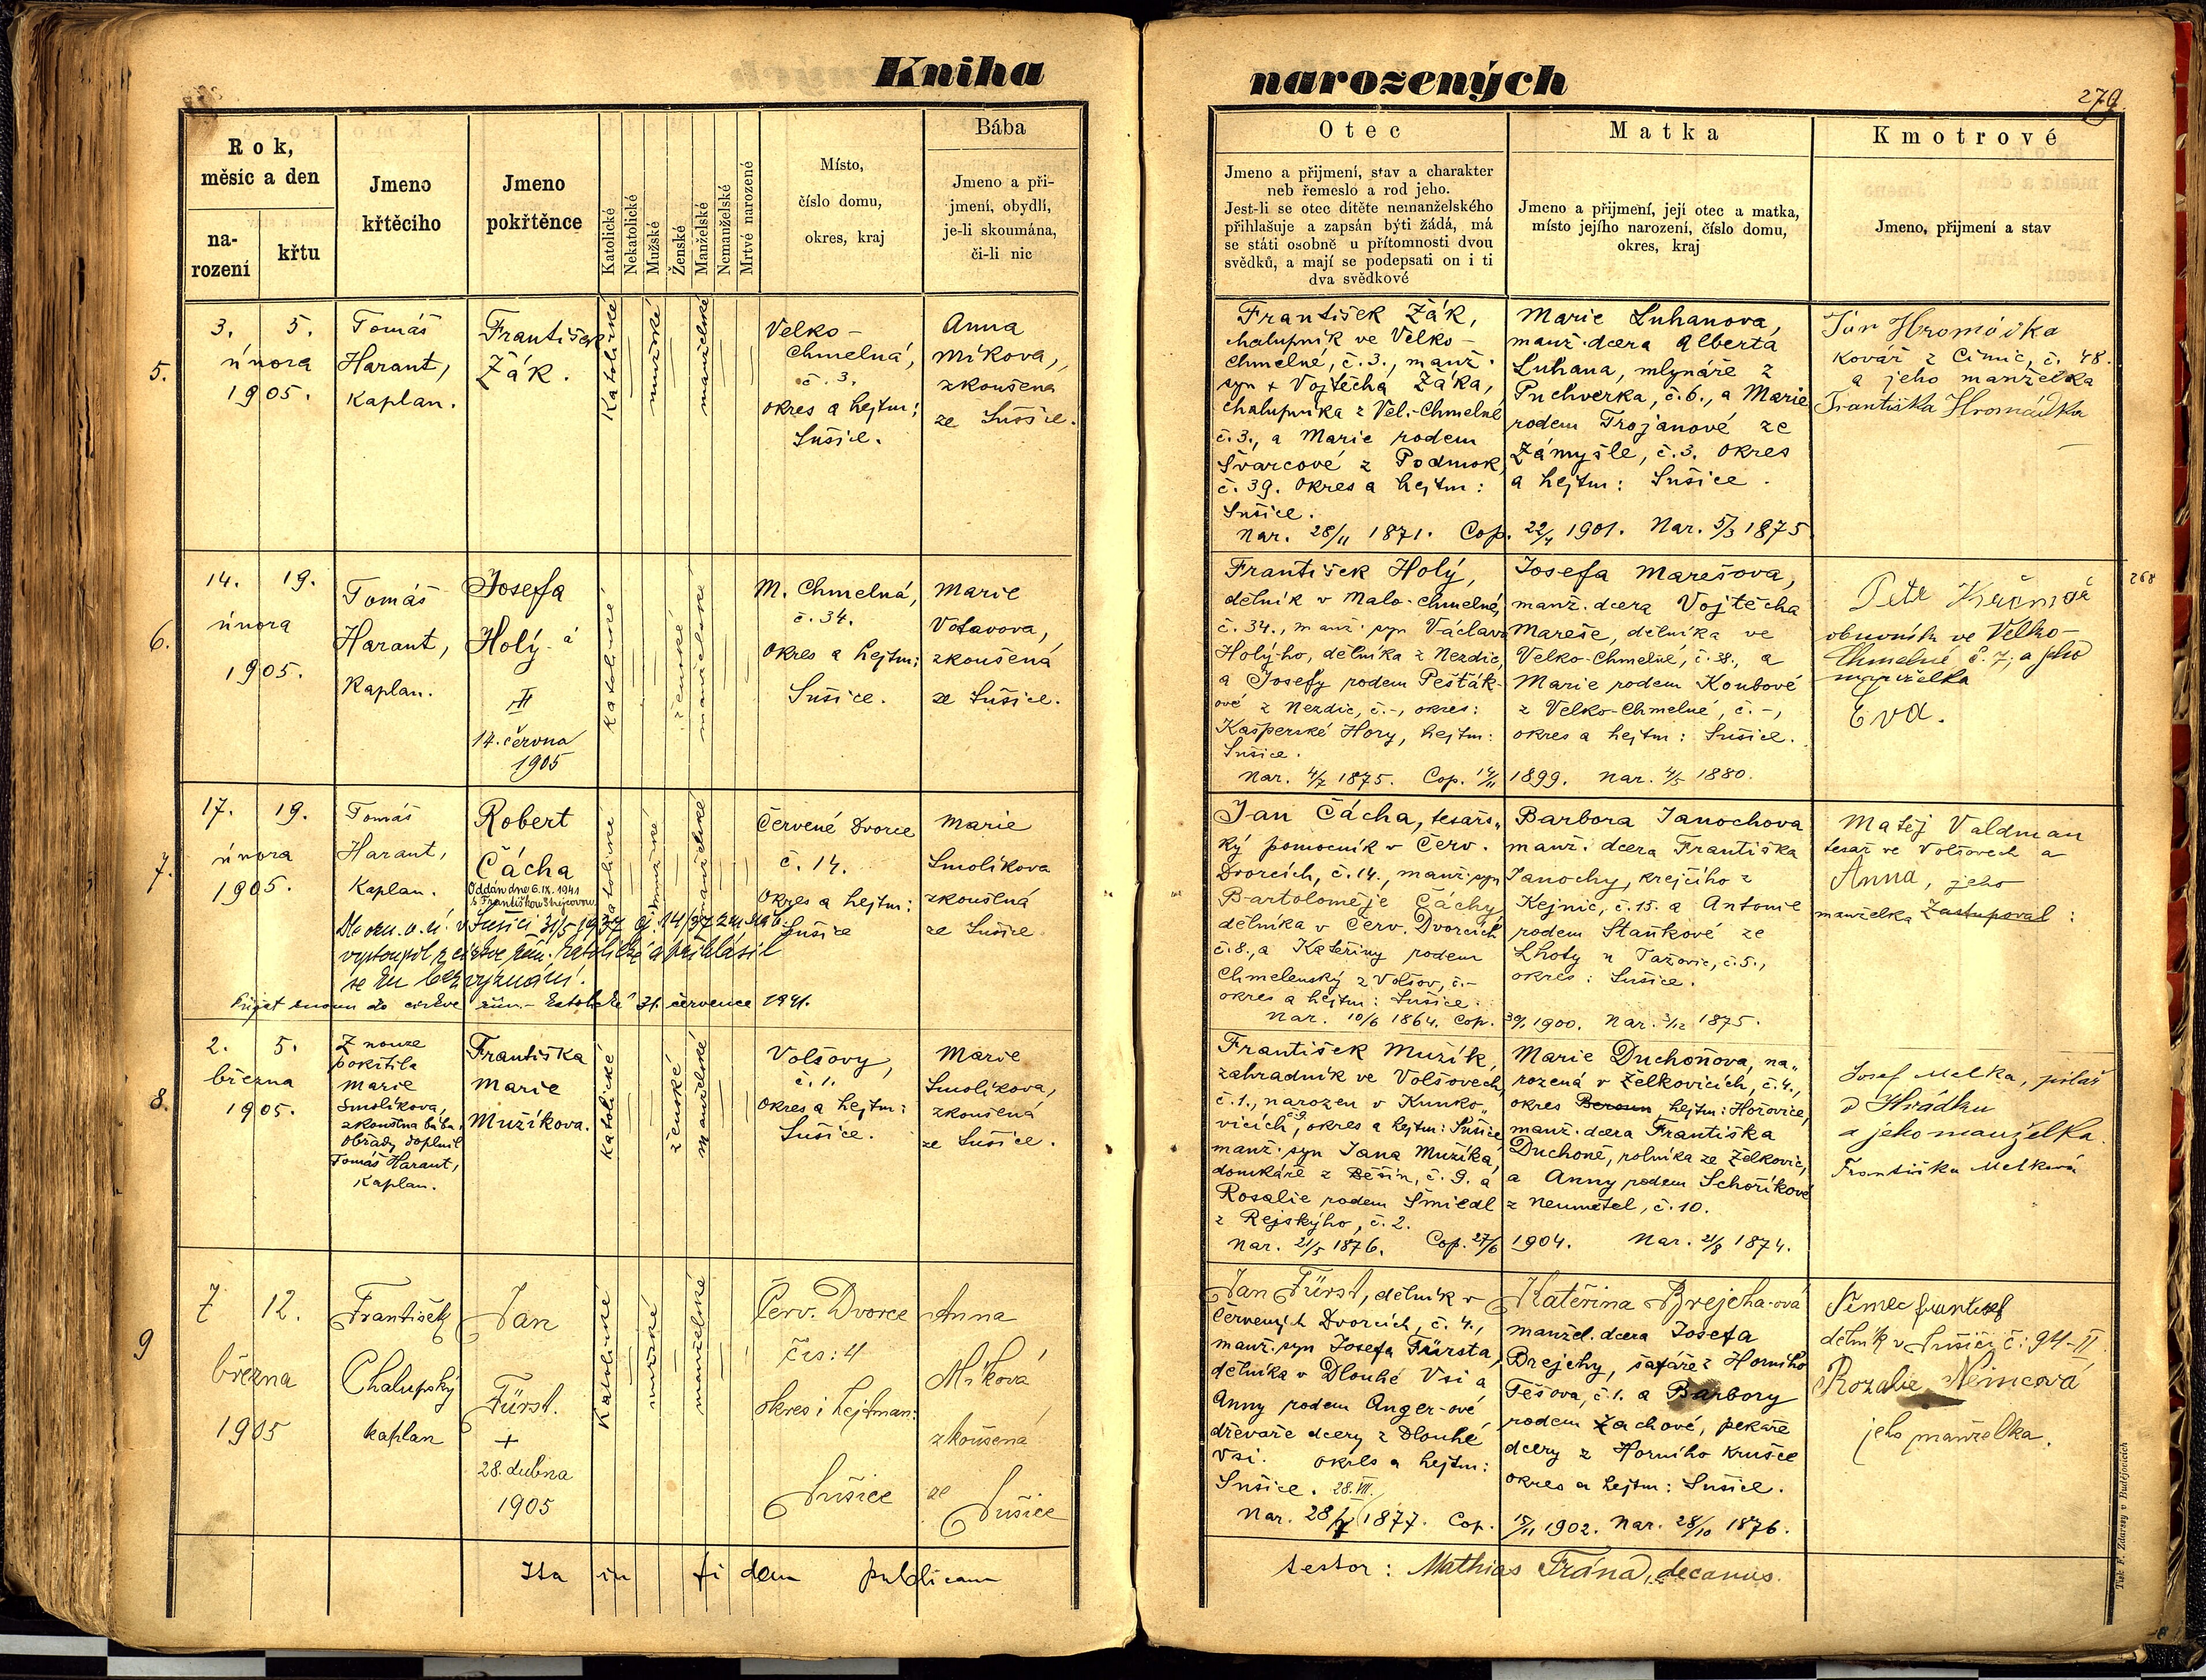 Kniha
narozených
279
Rok,
měsíc a den
na-
rození
křtu
Jmeno
křtěcího
Jmeno
pokřtěnce
Katolické
Nekatolické
Mužské
Ženské
Manželské
Nemanželské
Mrtvé narozené
Místo,
číslo domu,
okres, kraj
Bába
Jmeno a při-
jmení, obydlí,
je-li skoumána,
či-li nic
Otec
Jmeno a přijmení, stav a charakter
neb řemeslo a rod jeho.
Jest-li se otec dítěte nemanželského
přihlašuje a zapsán býti žádá, má
se státi osobně u přítomnosti dvou
svědků, a mají se podepsati on i ti
dva svědkové
Matka
Jmeno a přijmení, její otec a matka,
místo jejího narození, číslo domu,
okres, kraj
Kmotrové
Jmeno, přijmení a stav
5.
3. 5.
února
1905.
Tomáš
Harant,
Kaplan.
František
Žák.
Katolické
mužské
manželské
Velko-
Chmelná,
č. 3.
okres a hejtm:
Sušice.
Anna
Míkova,
zkoušena
ze Sušice.
František Žák,
chalupník ve Velko-
Chmelné, č. 3., manž.
syn + Vojtěcha Žáka,
chalupníka z Vel.-Chmelné
č. 3., a Marie rodem
Švarcové z Podmok,
č. 39. okres a hejtm:
Sušice.
Nar. 28/11 1871. Cop. 22/4 1901. Nar. 5/3 1875
Marie Luhanova,
manž. dcera Alberta
Luhana, mlynáře z
Puchverka, č. 6., a Marie
rodem Trojanové ze
Zámyšle, č. 3. okres
a hejtm: Sušice.
Jan Hromádka
Kovář z Čimic, č. 48.
a jeho manželka
Františka Hromádka
6.
14. 19.
února
1905.
Tomáš
Harant,
Kaplan.
Josefa
Holý-á
14. června
1905
Katolické
ženské
manželské
M. Chmelná,
č. 34.
okres a hejtm:
Sušice.
Marie
Votavova,
zkoušená
ze Sušice.
František Holý,
dělník v Malo-Chmelné,
č. 34., manž. syn Václava
Holý-ho, dělníka z Nezdic,
a Josefy rodem Pešták-
ové z Nezdic, č. -, okres:
Kašperské Hory, hejtm:
Sušice.
Nar. 4/7 1875. Cop. 14/11 1899. Nar. 4/5 1880.
Josefa Marešova,
manž. dcera Vojtěcha
Mareše, dělníka ve
Velko-Chmelné, č. 38., a
Marie rodem Koubové
z Velko-Chmelné, č. -,
okres a hejtm: Sušice.
268
Petr
obuvník ve Velko-
Chmelné č. 7; a jeho
manželka
Eva.
7.
17. 19.
února
1905.
Tomáš
Harant,
Kaplan.
Robert
Čácha
Oddán dne 6. IX. 1941
s Františkou
Katolické
mužské
manželské
Červené Dvorce
č. 14.
okres a hejtm:
Sušice
Marie
Smolíkova
zkoušená
ze Sušice
v Sušici 31/5 1937 čj. 14/37
vystoupil z církve řím. katolické a přihlásil
se ku bez vyznání.
Přijat znovu do církve řím.-katolické 31. července 1941.
Jan Čácha, tesařs„
ký pomocník v Červ.
Dvorcích, č. 14., manž. syn
Bartoloměje Čáchy
dělníka v Červ. Dvorcích
č. 8., a Kateřiny rodem
Chmelenský z Volšov, č. -
okres a hejtm: Sušice.
Nar. 10/6 1864. Cop. 30/1 1900. Nar. 3/12 1875.
Barbora Janochova
manž. dcera Františka
Janochy, krejčího z
Kejnic, č. 15. a Antonie
rodem Staňkové ze
Lhoty u Tažovic, č. 5.,
okres: Sušice.
Matěj Valdman
tesař ve Volšovech a
Anna, jeho
manželka Zastupoval:
8.
2. 5.
března
1905.
Z nouze
pokřtila
Marie
Smolíkova,
zkoušena bába.
Obřady doplnil
Tomáš Harant,
Kaplan.
Františka
Marie
Mužíkova.
Katolické
ženské
manželské
Volšovy,
č. 1.
okres a hejtm:
Sušice.
Marie
Smolíkova,
zkoušená
ze Sušice.
František Mužík,
zahradník ve Volšovech,
č. 1., narozen v Kunko„
vicích, č. 9. okres a hejtm: Sušice
manž. syn Jana Mužíka,
domkáře z Běšin, č. 9. a
Rosalie rodem Šmiedl
z Rejského, č. 2.
Nar. 21/5 1876. Cop. 27/6 1904. Nar. 21/8 1874.
Marie Duchoňova, na„
rozená v Želkovicích, č. 4.,
okres Beroun, hejtm: Hořovice,
manž. dcera Františka
Duchoně, rolníka ze Želkovic,
a Anny rodem Schoříkové
z Neumětel, č. 10.
Josef Melka, pilař
z Hrádku
a jeho manželka.
Františka Melková
9
7 12.
března
1905
František
Chalupský
kaplan
Jan
Fürst.
+
28. dubna
1905
Katolické
mužské
manželské
Červ. Dvorce
čís: 4
okres i hejtman:
Sušice
Anna
Míková
zkoušená
ze
Sušice
Jan Fürst, dělník v
Červených Dvorcích, č. 4.,
manž. syn Josefa Fürsta,
dělníka v Dlouhé Vsi a
Anny rodem Anger-ové,
dřevaře dcery z Dlouhé
Vsi. okres a hejtm:
Sušice. 28. VII.
Nar. 28/7 1877. Cop. 15/11 1902. Nar. 28/10 1876.
Kateřina Brejcha-ová
manžel. dcera Josefa
Brejchy, šafáře z Horního
Těšova, č. 1. a Barbory
rodem Zachové, pekaře
dcery z Horního Krušce
okres a hejtm: Sušice.
Němec František
dělník v Sušici č: 94-II.
Rozalie Němcová
jeho manželka.
Ita in fidem publicam
testor: Mathias Frána, decanus.
Tisk F. Zdarssy v Budějovicích